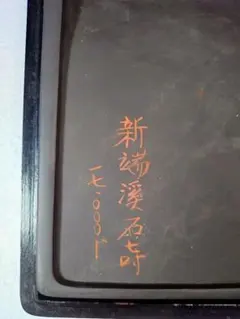 新端溪石吋
一七.〇〇〇円